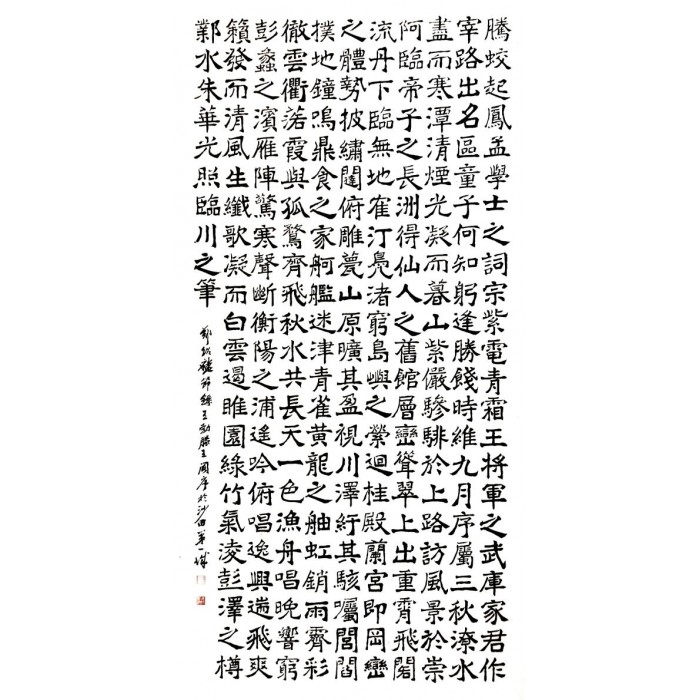 騰蛟起鳳孟學士之詞宗紫電青霜王將軍之武庫家君作
宰路出名區童子何知躬逢勝餞時維九月序屬三秋潦水
盡而寒潭清煙光凝而暮山紫儼驂騑於上路訪風景於崇
阿臨帝子之長洲得仙人之舊館層巒聳翠上出重霄飛閣
流丹下臨無地隺汀鳧渚窮島嶼之縈迴桂殿蘭宮即岡巒
之體勢披繡闥俯雕甍山原曠其盈視川澤紆其駭矚閭閻
撲地鐘鳴鼎食之家舸艦迷津青雀黃龍之舳虹銷雨霽彩
徹雲衢落霞與孤鶩齊飛秋水共長天一色漁舟唱晚響窮
彭蠡之濱雁陣驚寒聲斷衡陽之浦遙吟俯唱逸興遄飛爽
籟發而清風生纖歌凝而白雲遏睢園綠竹氣淩彭澤之樽
鄴水朱華光照臨川之筆
節錄王勃滕王閣序於沙田第一城